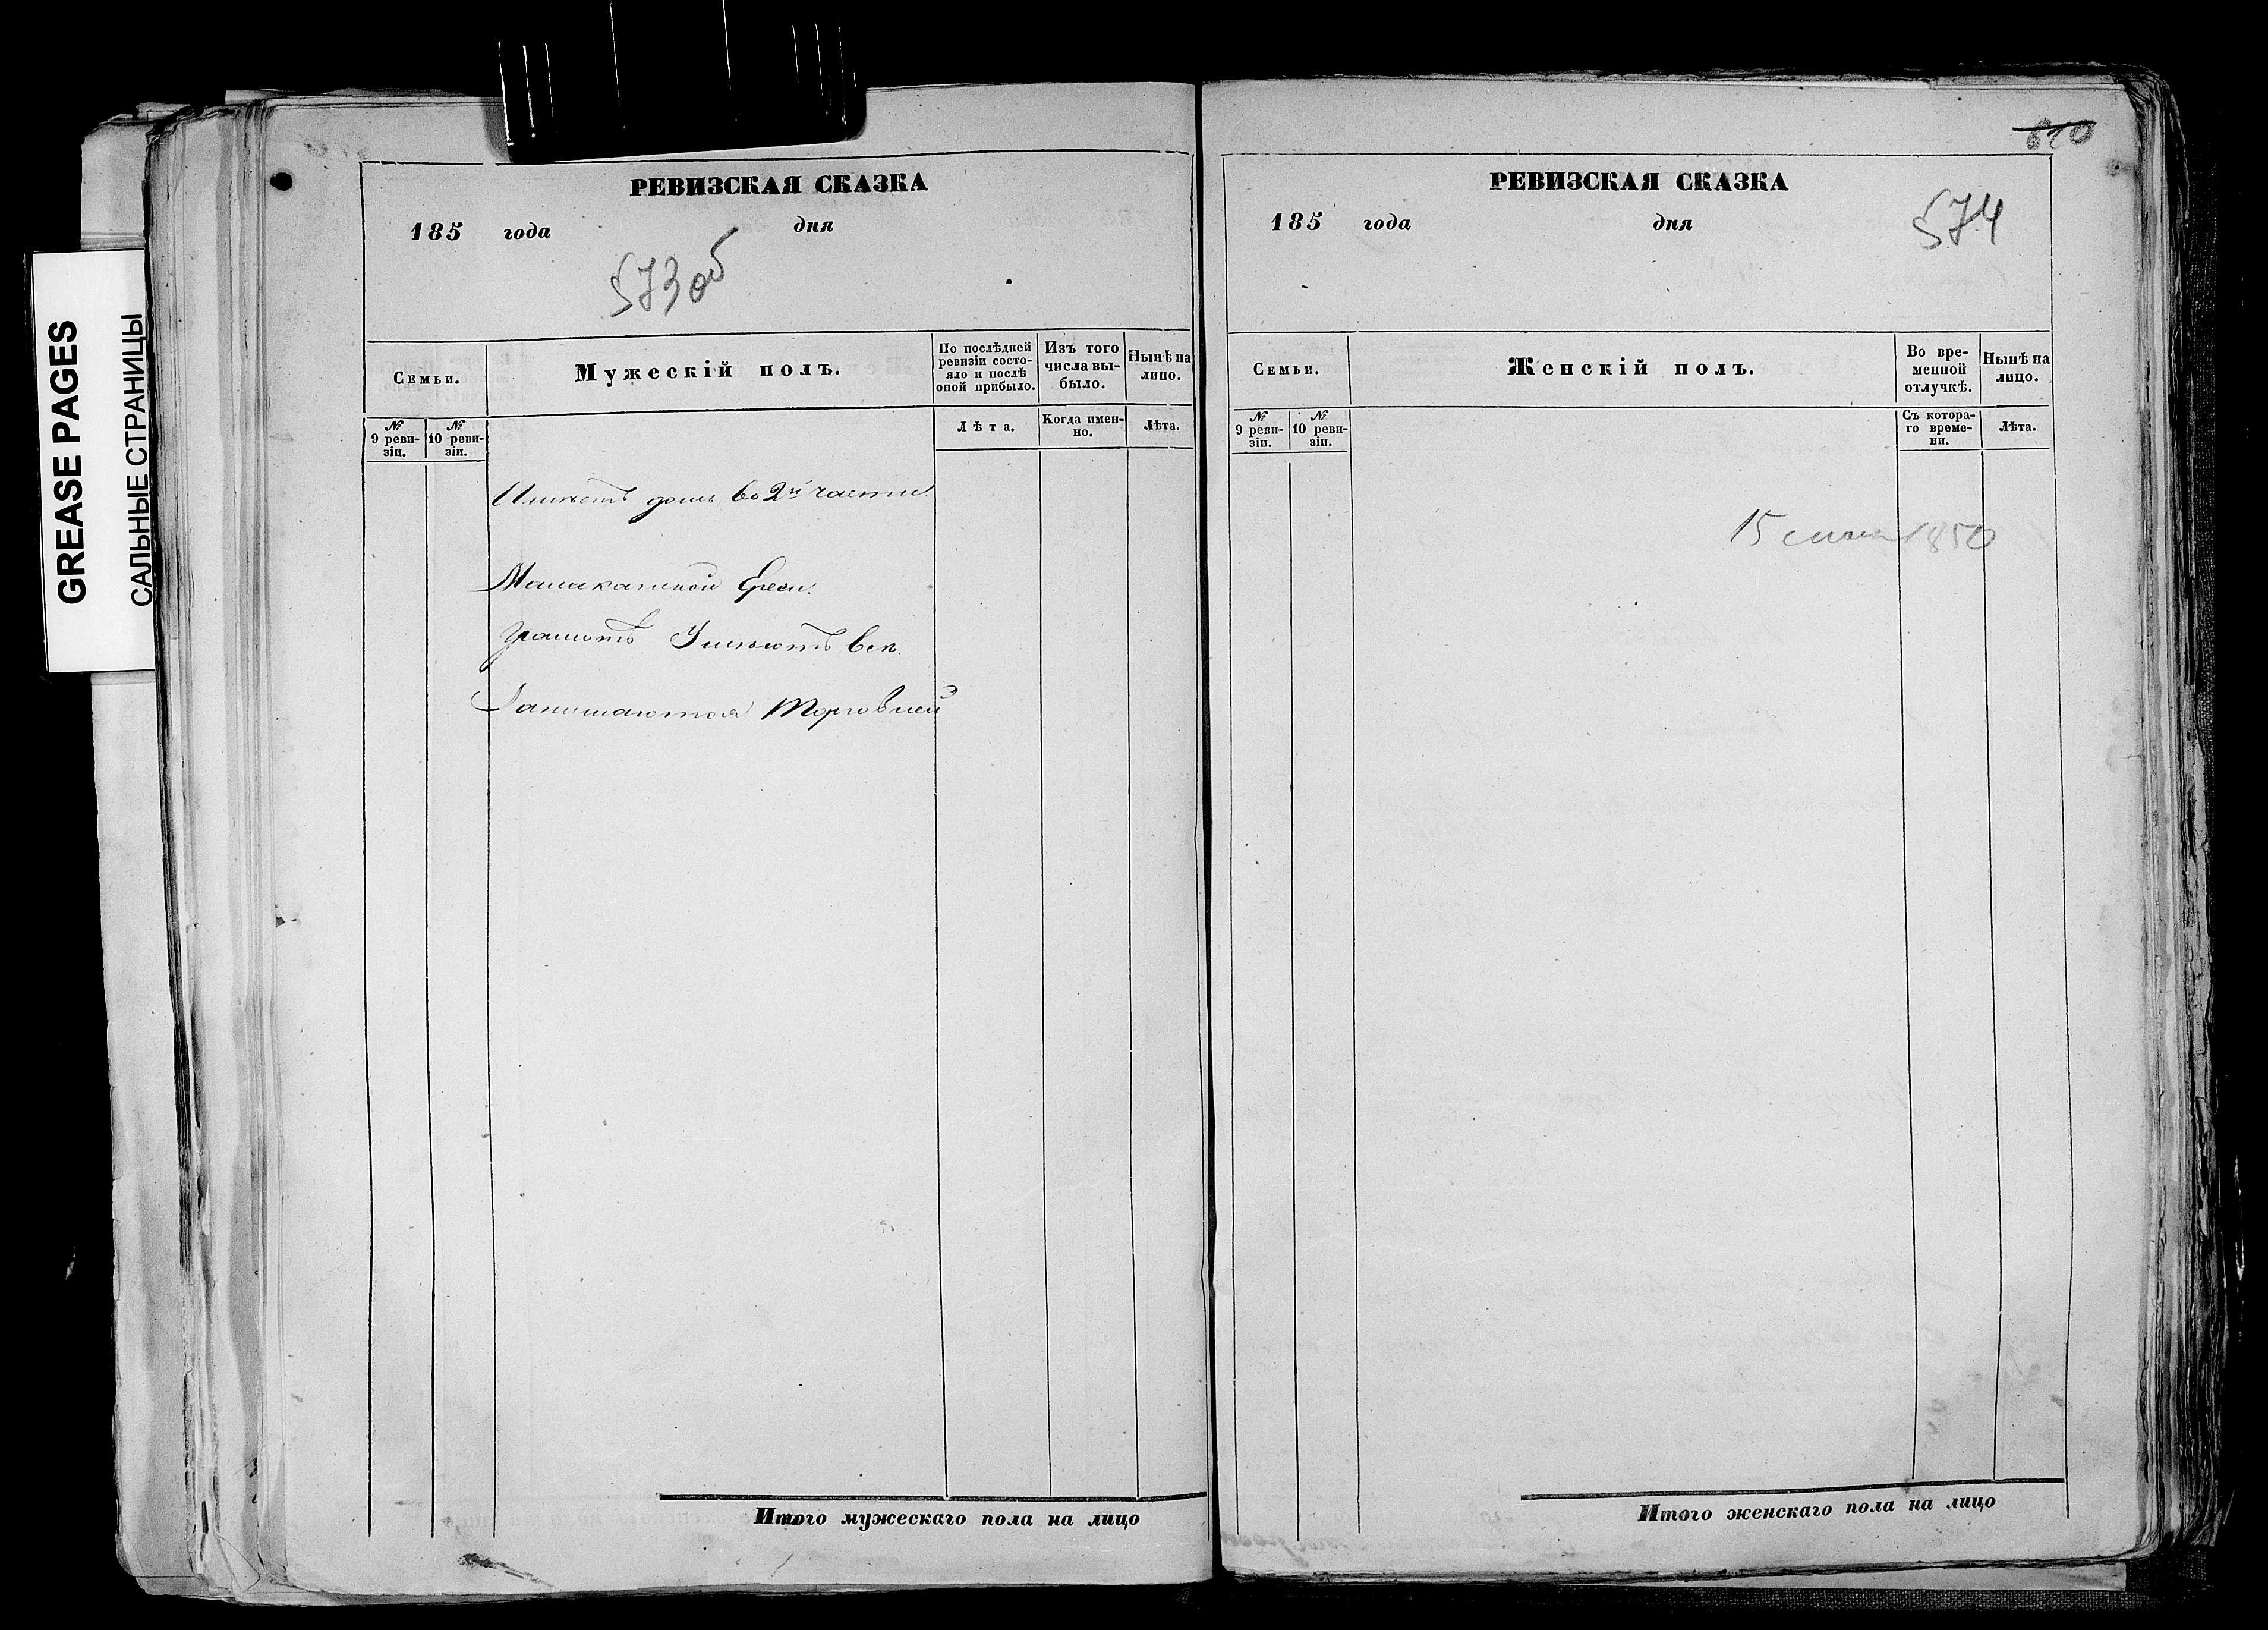 GREASE PAGES
САЛЬНЫЕ СТРАНИЦЫ
РЕВИЗСКАЯ СКАЗКА
185 года дня
573 об
Семьи.
Мужескій полъ.
По послѣдней ревизіи состояло и послѣ оной прибыло.
Изъ того числа выбыло.
Нынѣ на лицо.
№ 9 ревизіи.
№ 10 ревизіи.
Лѣта.
Когда именно.
Лѣта.
Имѣетъ домъ во 2й части.
Малаканской Ереси.
Грамотѣ Умѣютъ всѣ.
Занимаются Торговлей
Итого мужескаго пола на лицо
610
РЕВИЗСКАЯ СКАЗКА
185 года дня
574
Семьи.
Женскій полъ.
Во временной отлучкѣ.
Нынѣ на лицо.
№ 9 ревизіи.
№ 10 ревизіи.
Съ котораго времени.
Лѣта.
15 1850
Итого женскаго пола на лицо